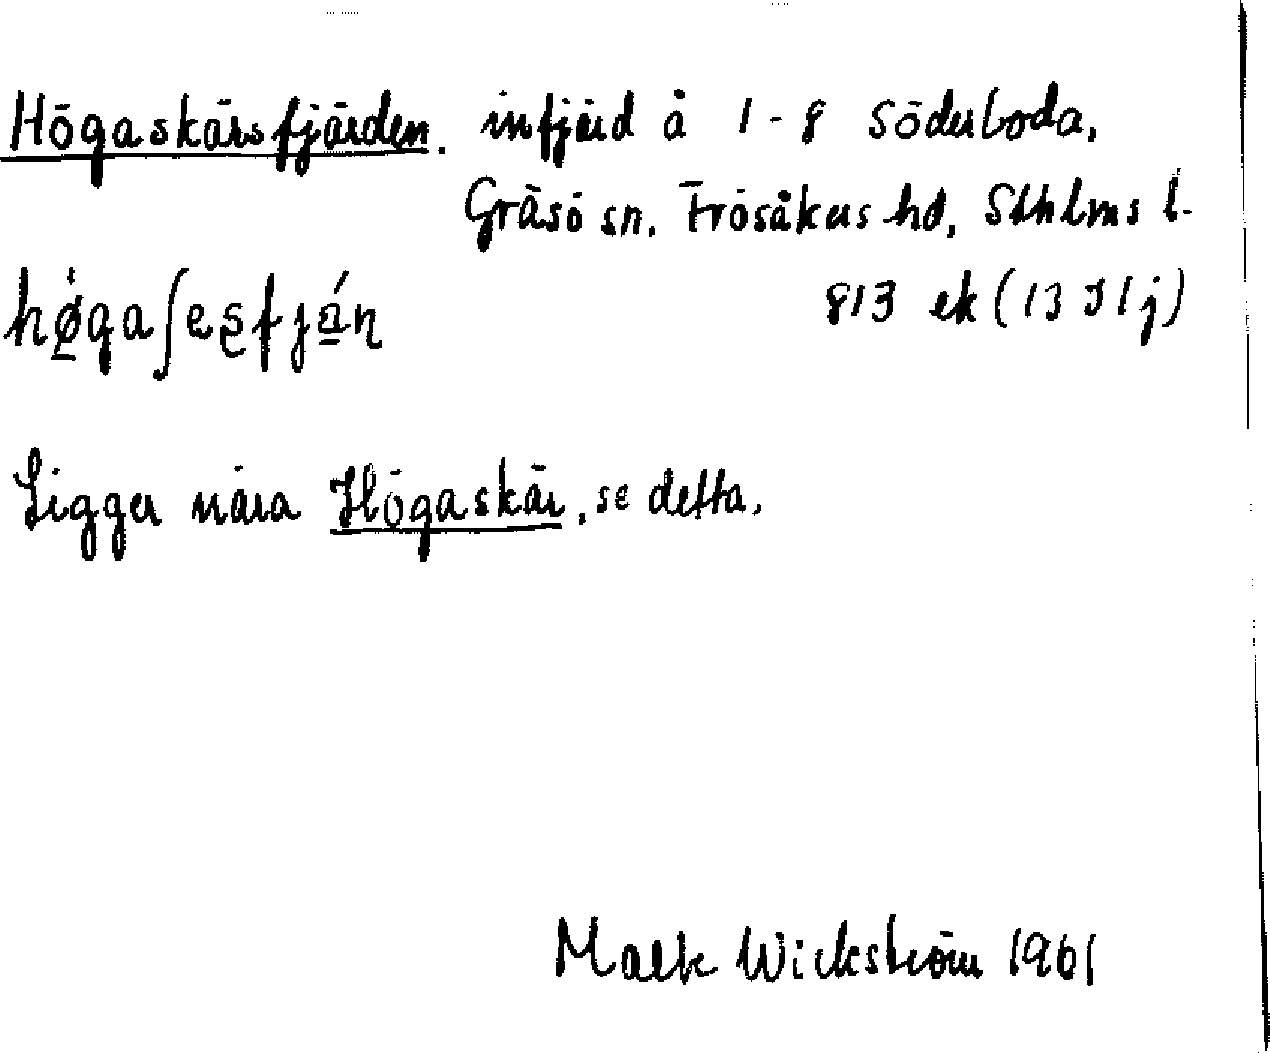 Högaskärsfjärden. infjärd å 1-8 Söderboda,
Gräsö sn. Frösåkers hd, Sthlms l.
hø̀gaʃesfján 813 ek (13 I 1 j)
Ligger nära Högaskär, se detta.
Wickström 1961